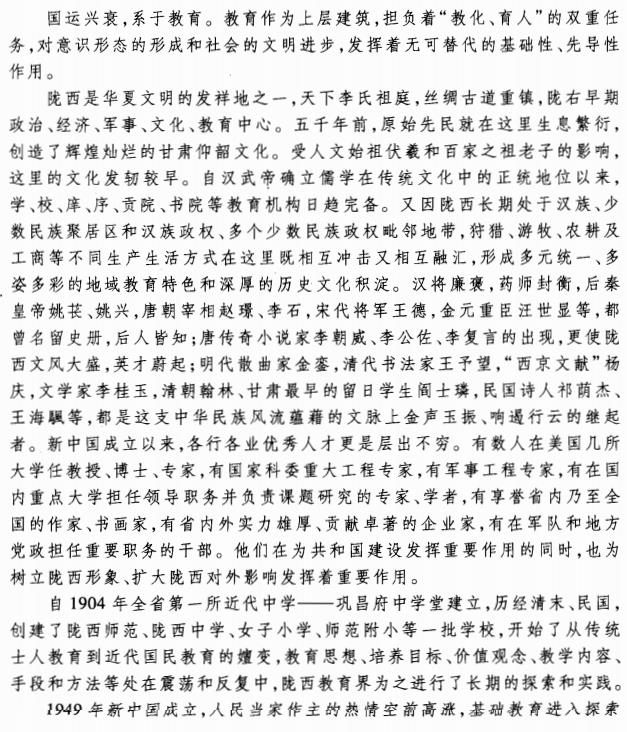 国运兴衰,系于教育。教育作为上层建筑,担负着“教化、育人”的双重任
务,对意识形态的形成和社会的文明进步,发挥着无可替代的基础性、先导性
作用。
陇西是华夏文明的发祥地之一,天下李氏祖庭,丝绸古道重镇,陇右早期
政治、经济、军事、文化、教育中心。五千年前,原始先民就在这里生息繁衍,
创造了辉煌灿烂的甘肃仰韶文化。受人文始祖伏羲和百家之祖老子的影响,
这里的文化发轫较早。自汉武帝确立儒学在传统文化中的正统地位以来,
学、校、庠、序、贡院、书院等教育机构日趋完备。又因陇西长期处于汉族、少
数民族聚居区和汉族政权、多个少数民族政权毗邻地带,狩猎、游牧、农耕及
工商等不同生产生活方式在这里既相互冲击又相互融汇,形成多元统一、多
姿多彩的地域教育特色和深厚的历史文化积淀。汉将廉褒,药师封衡,后秦
皇帝姚苌、姚兴,唐朝宰相赵璟、李石,宋代将军王德,金元重臣汪世显等,都
曾名留史册,后人皆知;唐传奇小说家李朝威、李公佐、李复言的出现,更使陇
西文风大盛,英才蔚起;明代散曲家金銮,清代书法家王予望,“西京文献”杨
庆,文学家李桂玉,清朝翰林、甘肃最早的留日学生阎士璘,民国诗人祁荫杰、
王海飒等,都是这支中华民族风流蕴藉的文脉上金声玉振、响遏行云的继起
者。新中国成立以来,各行各业优秀人才更是层出不穷。有数人在美国几所
大学任教授、博士、专家,有国家科委重大工程专家,有军事工程专家,有在国
内重点大学担任领导职务并负责课题研究的专家、学者,有享誉省内乃至全
国的作家、书画家,有省内外实力雄厚、贡献卓著的企业家,有在军队和地方
党政担任重要职务的干部。他们在为共和国建设发挥重要作用的同时,也为
树立陇西形象、扩大陇西对外影响发挥着重要作用。
自 1904 年全省第一所近代中学——巩昌府中学堂建立,历经清末、民国,
创建了陇西师范、陇西中学、女子小学、师范附小等一批学校,开始了从传统
士人教育到近代国民教育的嬗变,教育思想、培养目标、价值观念、教学内容、
手段和方法等处在震荡和反复中,陇西教育界为之进行了长期的探索和实践。
1949 年新中国成立,人民当家作主的热情空前高涨,基础教育进入探索